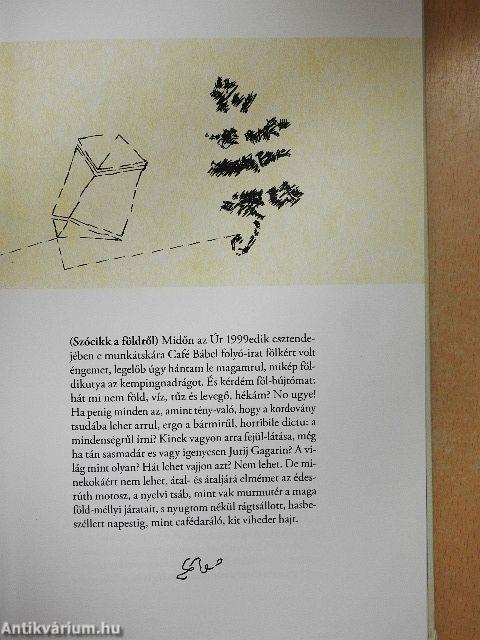 (Szócikk a földről) Midőn az Úr 1999edik esztende-
jében e munkátskára Café Bábel folyó-irat fölkért volt
éngemet, legelöb úgy hántam le magamrul, mikép föl-
dikutya az kempingnadrágot. És kérdém föl-bújtómat:
hát mi nem föld, víz, tűz és levegő, hékám? No ugye!
Ha penig minden az, amint tény-való, hogy a kordovány
tsudába lehet arrul, ergo a bármirűl, horribile dictu: a
mindenségrűl írni? Kinek vagyon arra fejül-látása, még
ha tán sasmadár es vagy igenyesen Jurij Gagarin? A vi-
lág mint olyan? Hát lehet vajjon azt? Nem lehet. De mi-
nekokáért nem lehet, átal- és átaljárá elmémet az édes-
rúth motosz, a nyelvi tsáb, mint vak murmutér a maga
föld-méllyi járatait, s nyugtom nékül rágtsállott, hasbe-
széllett napestig, mint cafédaráló, kit viheder hajt.
Antikvárium.hu